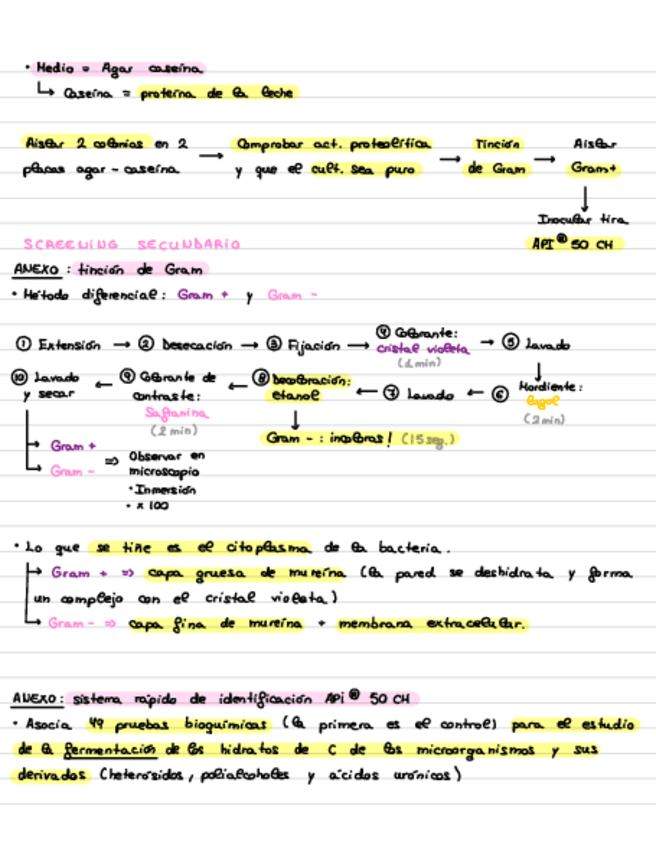 • Medio = Agar caseína
↳ Caseína = proteína de la leche
Aislar 2 colonias en 2 placas agar - caseína → Comprobar act. proteolítica y que el cult. sea puro → Tinción de Gram → Aislar Gram+
↓
Inocular tira API® 50 CH
SCREENING SECUNDARIO
ANEXO: tinción de Gram
• Método diferencial: Gram + y Gram -
① Extensión → ② Desecación → ③ Fijación → ④ Colorante: cristal violeta (1 min) → ⑤ Lavado
↓
⑥ Mordiente: lugol (2 min) ← ⑦ Lavado ← ⑧ Decoloración: etanol ← ⑨ Colorante de contraste: Safranina (2 min) ← ⑩ Lavado y secar
↓
Gram - : incoloras! (15 seg.)
→ Gram +
→ Gram -
⇒ Observar en microscopio
• Inmersión
• x 100
• Lo que se tiñe es el citoplasma de la bacteria.
→ Gram + ⇒ capa gruesa de mureína (la pared se deshidrata y forma
un complejo con el cristal violeta)
→ Gram - ⇒ capa fina de mureína + membrana extracelular.
ANEXO: sistema rápido de identificación API® 50 CH
• Asocia 49 pruebas bioquímicas (la primera es el control) para el estudio
de la fermentación de los hidratos de C de los microorganismos y sus
derivados (heterósidos, polialcoholes y ácidos urónicos)